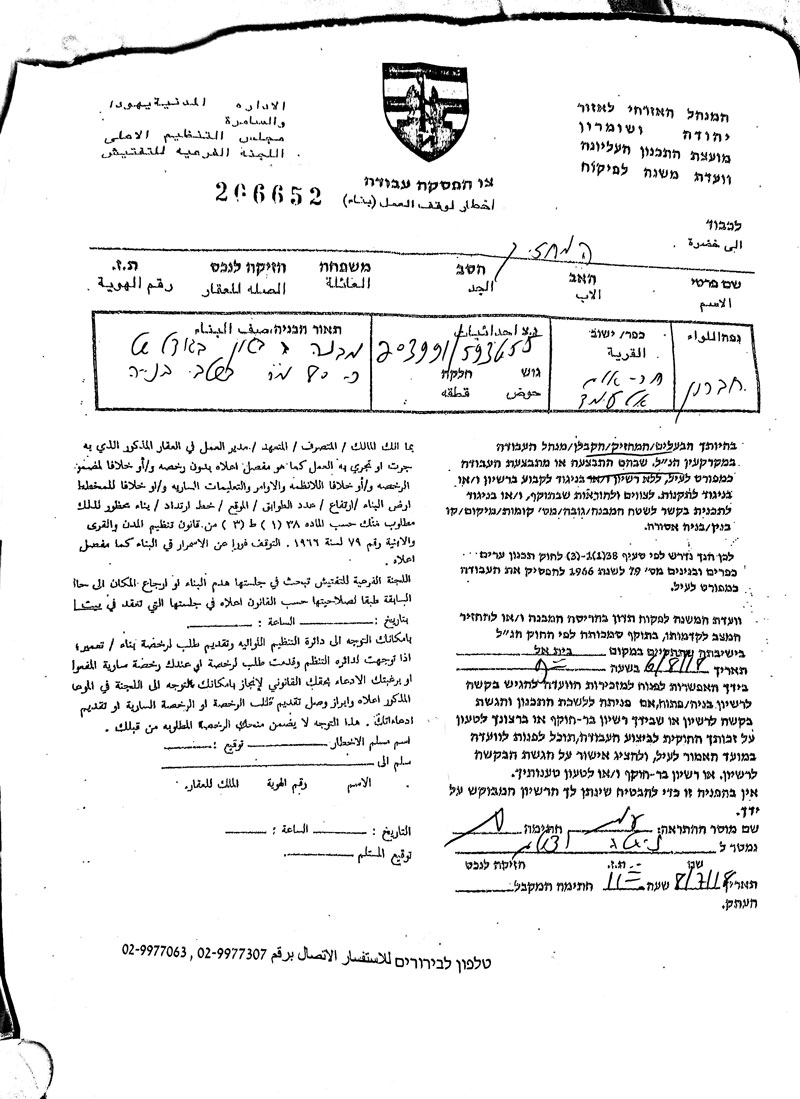 המנהל האזרחי לאזור
יהודה ושומרון
מועצת התכנון העליונה
וועדת משנה לפיקוח
الاداره المدنية يهودا/
والسامرة
مجلس التنظيم الاعلى
اللجنة الفرعيه للتفتيش
צו הפסקת עבודה
اخطار لوقف العمل (بناء)
206652
לכבוד
الى حضرة
המחזיק
שם פרטי האב הסב משפחה חזיקה לנכס ת.ז.
الاسم الاب الجد العائلة الصله للعقار رقم الهوية
נפה اللواء כפר/ ישוב נ.צ احداثيات תאור הבניה/صيف البناء
القرية
חברון
203991/593655
גוש חלקה
حوض قطعه
בהיותך הבעלים/המחזיק/הקבלן/מנהל העבודה
במקרקעין הנ"ל, שבהם התבצעה או מתבצעת העבודה
כמפורט לעיל, ללא רשיון ו/או בניגוד לקבוע ברשיון ו/או
בניגוד לתקנות. לצווים ולהוראות שבתוקף, ו/או בניגוד
לתכנית בקשר לשטח המבנה/גובה/מס' קומות/מיקום/קו
בנין/בניה אסורה.
לכן הנך נדרש לפי סעיף 38(1)(ג-3) לחוק תכנון ערים
כפרים ובנינים מס' 79 לשנת 1966 להפסיק את העבודה
כמפורט לעיל.
וועדת המשנה לפקוח תדון בהריסת המבנה ו/או להחזיר
המצב לקדמותו, בתוקף סמכותה לפי החוק הנ"ל
בישיבתה שתתקיים במקום בית אל
תאריך 6/8/18 בשעה 9
בידך האפשרות לפנות למזכירות הוועדה להגיש בקשה
לרשיון בניה/פתוח, אם פניתה ללשכת התכנון והגשת
בקשה לרשיון או שבידך רשיון בר-תוקף או ברצונך לטעון
על זכותך החוקית לביצוע העבודה, תוכל לפנות לוועדה
במועד האמור לעיל, ולהציג אישור על הגשת הבקשה
לרשיון. או רשיון בר-תוקף ו/או לטעון טענותיך.
אין בהפניה זו כדי להבטיח שינתן לך הרשיון המבוקש על
ידך.
שם מוסר ההתראה: חתימה
נמסר ל
שם ת.ז. חזיקה לנכס
תאריך 8/7/18 שעה 11 חתימה המקבל
העתק.
بما انك المالك / المتصرف / المتعهد / مدير العمل في العقار المذكور الذي به
جرت او تجري به العمل كما هو مفصل اعلاه بدون رخصه و/أو خلافا لمضمون
الرخصه و/أو خلافا للانظمه والاوامر والتعليمات الساريه و/او خلافا للمخطط
ارض البناء /ارتفاع / عدد الطوابق / الموقع / خط ارتداد / بناء محظور لذلك
مطلوب منك حسب الماده ٣٨ (١) ط (٣) من قانون تنظيم المدن والقرى
والابنية رقم ٧٩ لسنة ١٩٦٦ . التوقف فورا عن الاسمرار في البناء كما مفصل
اعلاه .
اللجنة الفرعية للتفتيش تبحث في جلستها هدم البناء او ارجاع المكان الى حالته
السابقة طبقا لصلاحيتها حسب القانون اعلاه في جلستها التي تعقد في بيت ا
بتاريخ : الساعة :
بامكانك التوجه الى دائرة التنظيم اللوائيه وتقديم طلب لرخصة بناء / تعمير؛
اذا توجهت لدائره التنظم وقدمت طلب لرخصة او عندك رخصة سارية المفعو
او برغبتك الادعاء بحقك القانوني لإنجاز بامكانك التوجه الى اللجنة في الموعد
المذكور اعلاه وابراز وصل تقديم طلب الرخصة او الرخصة السارية او تقديم
ادعاءاتك . هذا التوجه لا يضمن منحك الرخصة المطلوبه من قبلك .
اسم مسلم الاخطار توقيع :
سلم الى
الاسم رقم الهوية المالك للعقار.
التاريخ : الساعة :
توقيع المستلم
טלפון לבירורים للاستفسار الاتصال برقم 02-9977307 , 02-9977063